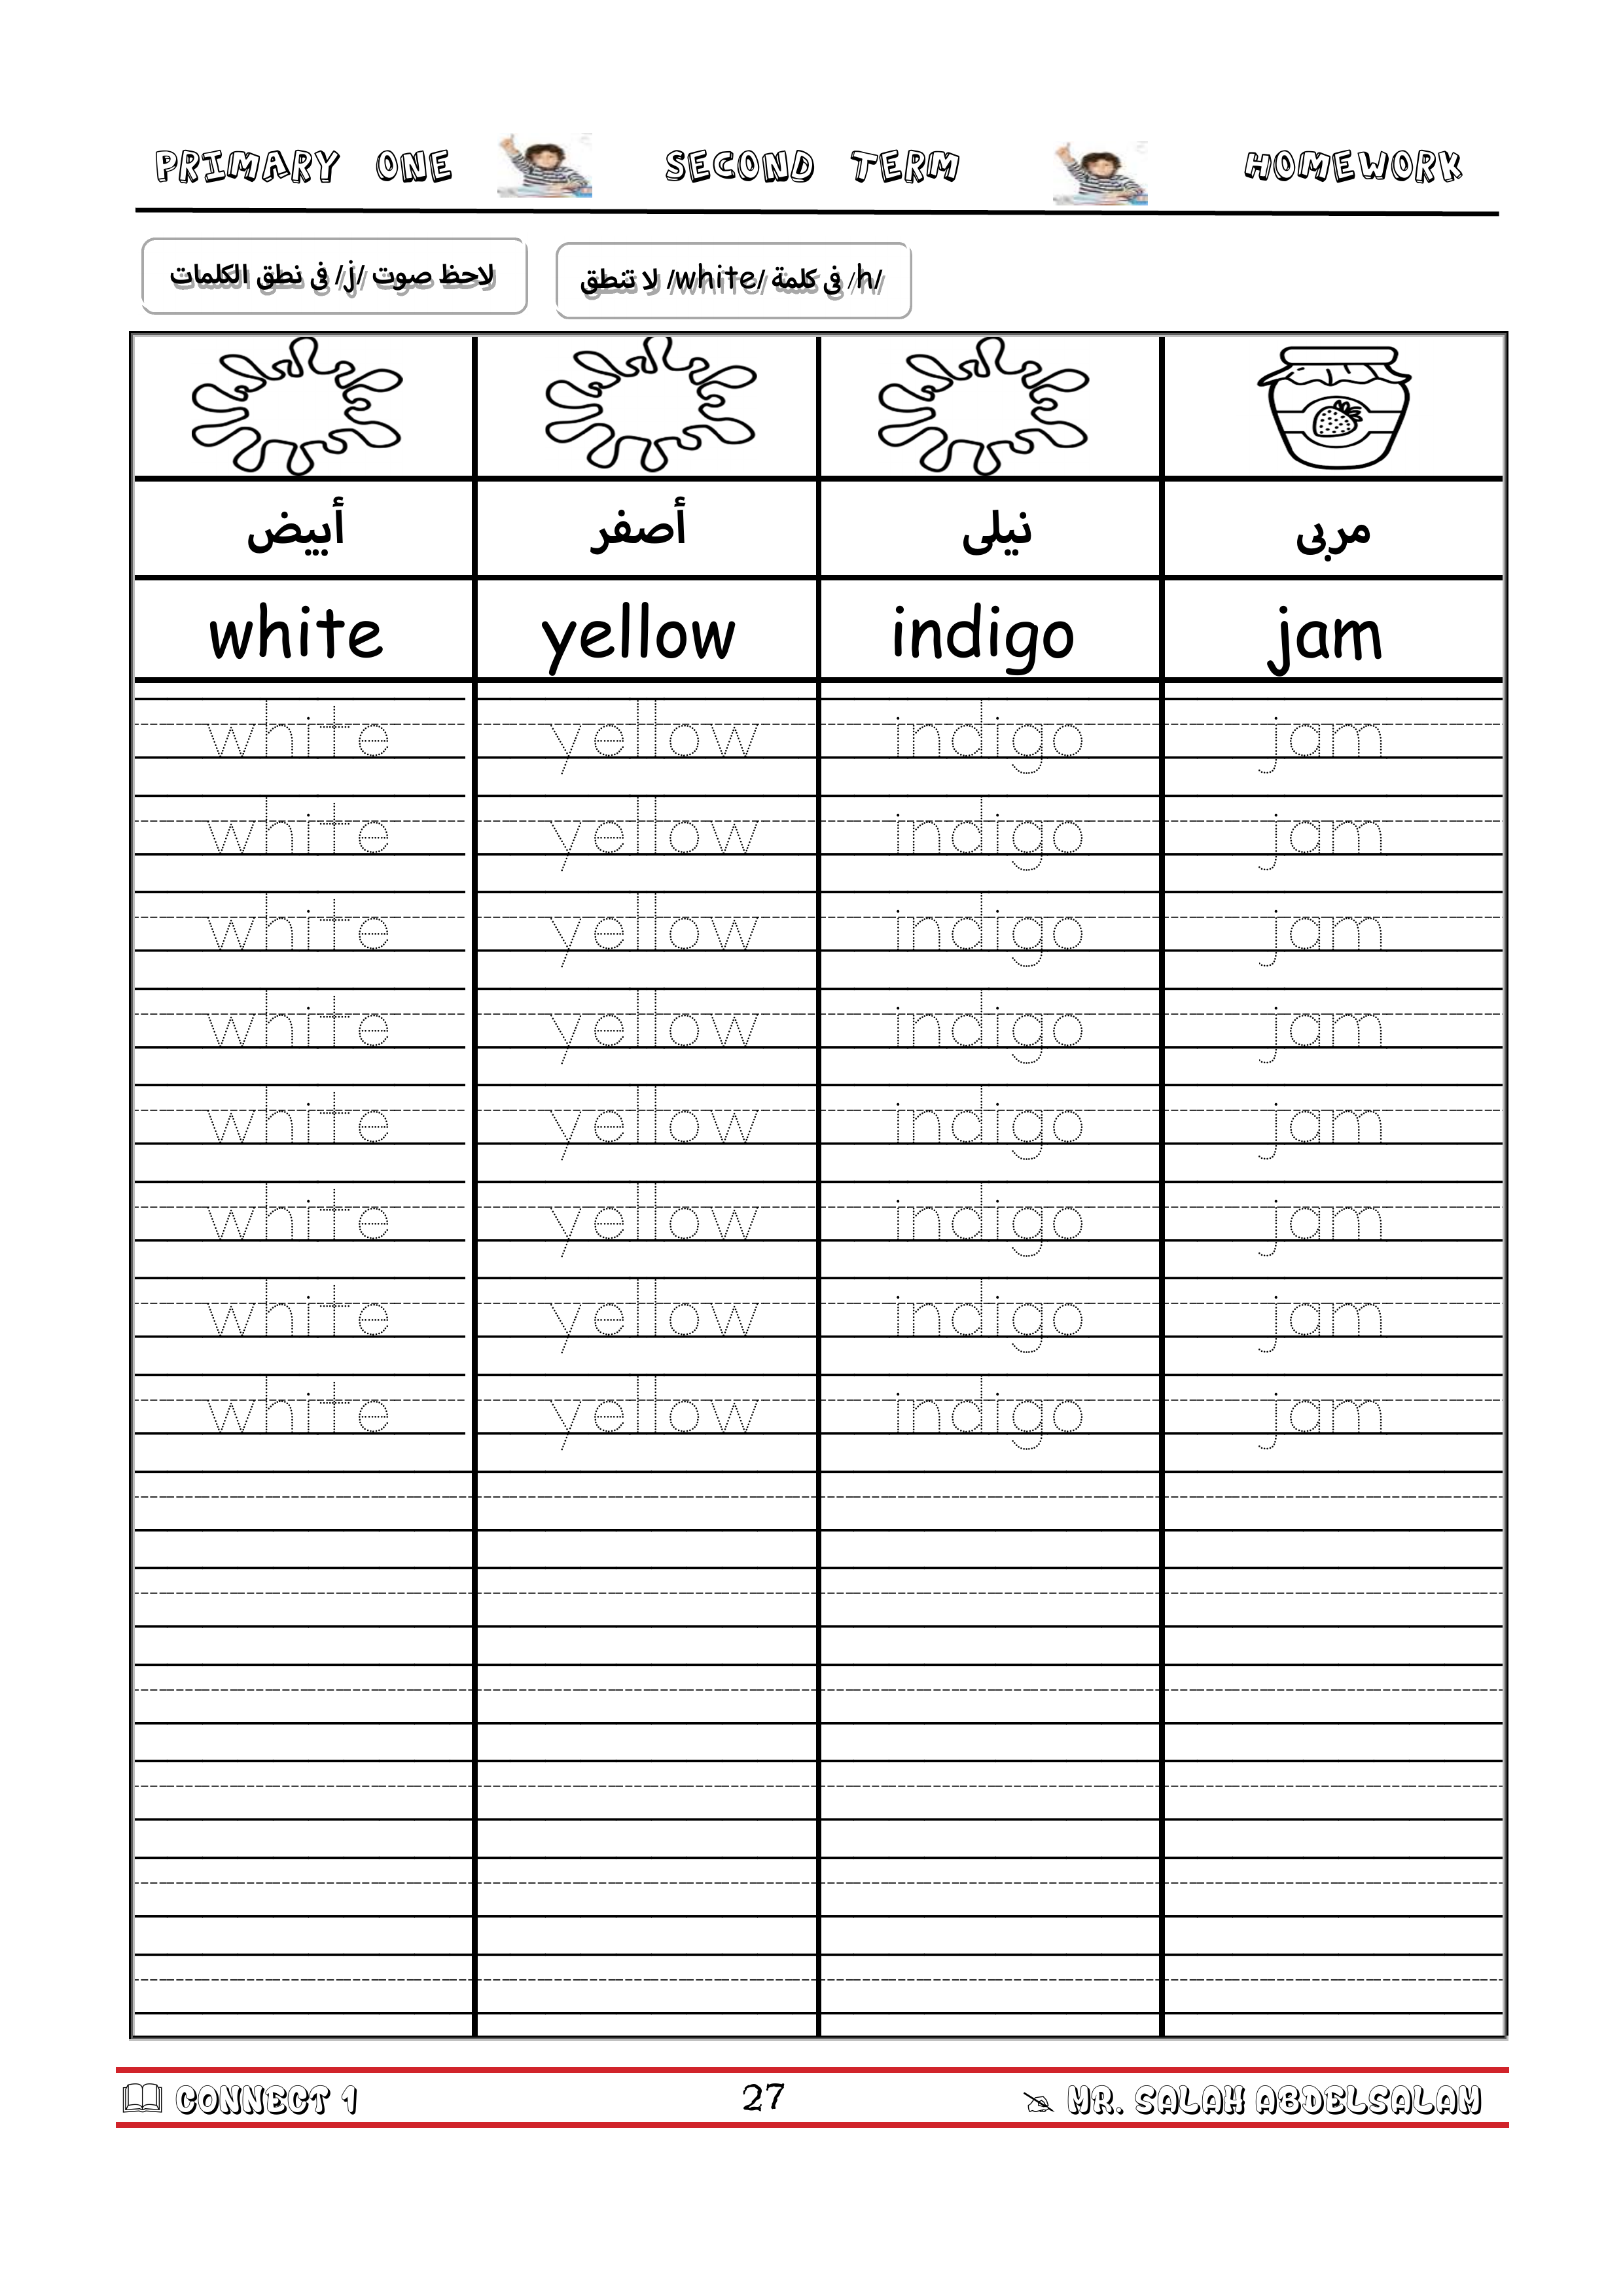 PRIMARY ONE SECOND TERM HOMEWORK
لاحظ صوت /j/ فى نطق الكلمات
/h/ فى كلمة /white/ لا تنطق
أبيض أصفر نيلى مربى
white yellow indigo jam
white yellow indigo jam
white yellow indigo jam
white yellow indigo jam
white yellow indigo jam
white yellow indigo jam
white yellow indigo jam
white yellow indigo jam
white yellow indigo jam
CONNECT 1 27 MR. SALAH ABDELSALAM